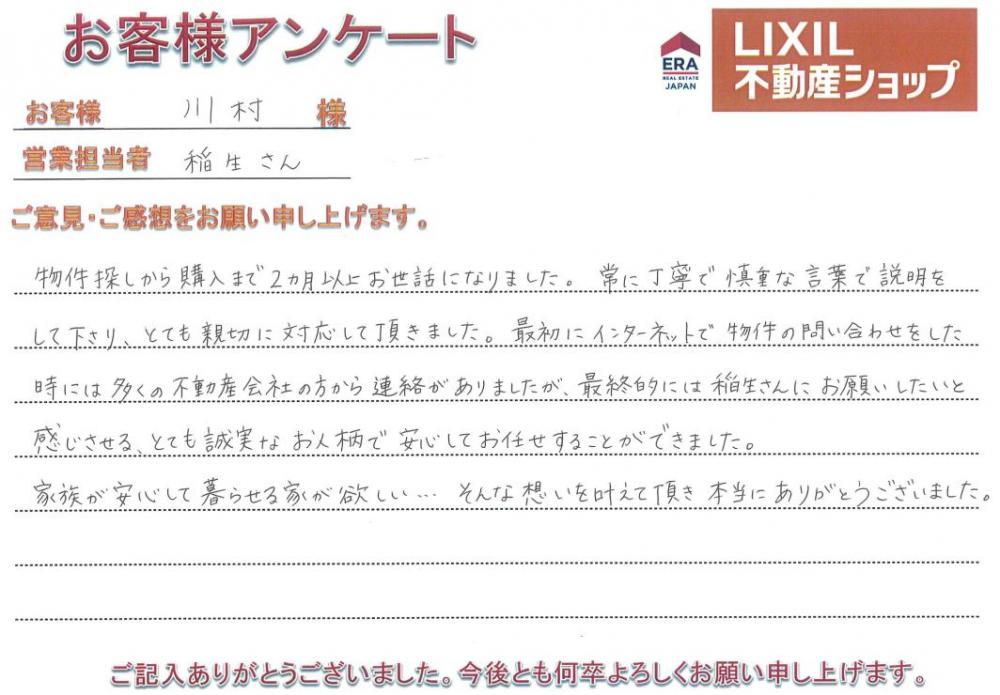 お客様アンケート
ERA
REAL ESTATE
JAPAN
LIXIL
不動産ショップ
お客様 川村 様
営業担当者 稲生さん
ご意見・ご感想をお願い申し上げます。
物件探しから購入まで2カ月以上お世話になりました。常に丁寧で慎重な言葉で説明を
して下さり、とても親切に対応して頂きました。最初にインターネットで物件の問い合わせをした
時には多くの不動産会社の方から連絡がありましたが、最終的には稲生さんにお願いしたいと
感じさせる、とても誠実なお人柄で安心してお任せすることができました。
家族が安心して暮らせる家が欲しい… そんな想いを叶えて頂き本当にありがとうございました。
ご記入ありがとうございました。今後とも何卒よろしくお願い申し上げます。